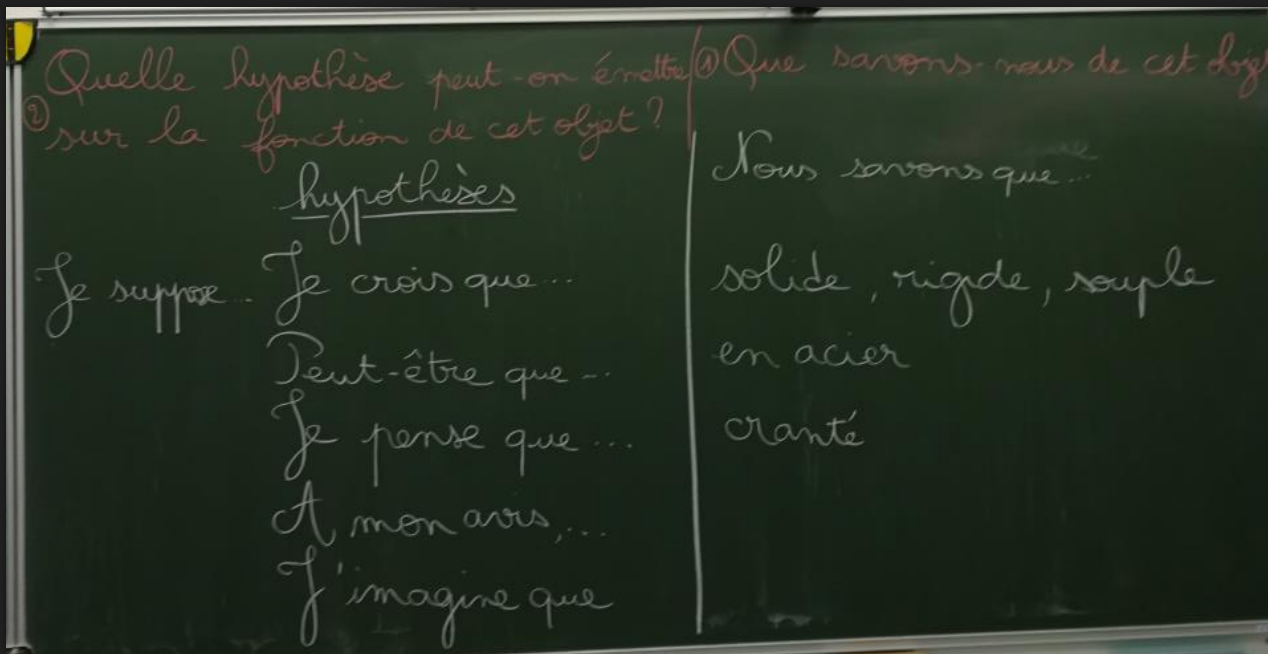 Quelle hypothèse peut-on émettre
② sur la fonction de cet objet ?
hypothèses
Je suppose... Je crois que...
Peut-être que...
Je pense que...
A mon avis,...
J'imagine que
① Que savons-nous de cet objet
Nous savons que...
solide, rigide, souple
en acier
cranté